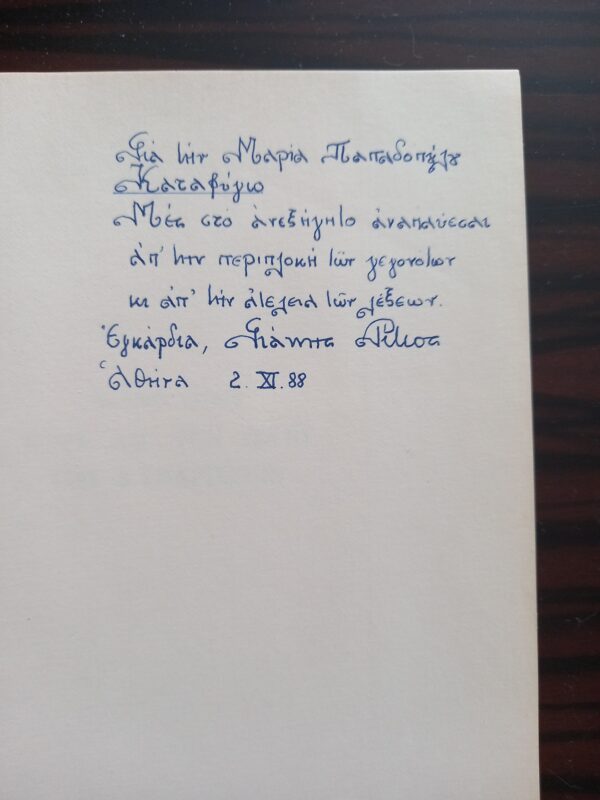 Γιὰ τὴν Μαρία Παπαδοπούλου
Καταφύγιο
Μὲς στὸ ἀνεξήγητο ἀναπαύεσαι
ἀπ' τὴν περιπλοκὴ τῶν γεγονότων
κι ἀπ' τὴν ἀτέλεια τῶν λέξεων.
Ἐγκάρδια, Γιάννης Ρίτσος
Ἀθήνα 2. XI. 88